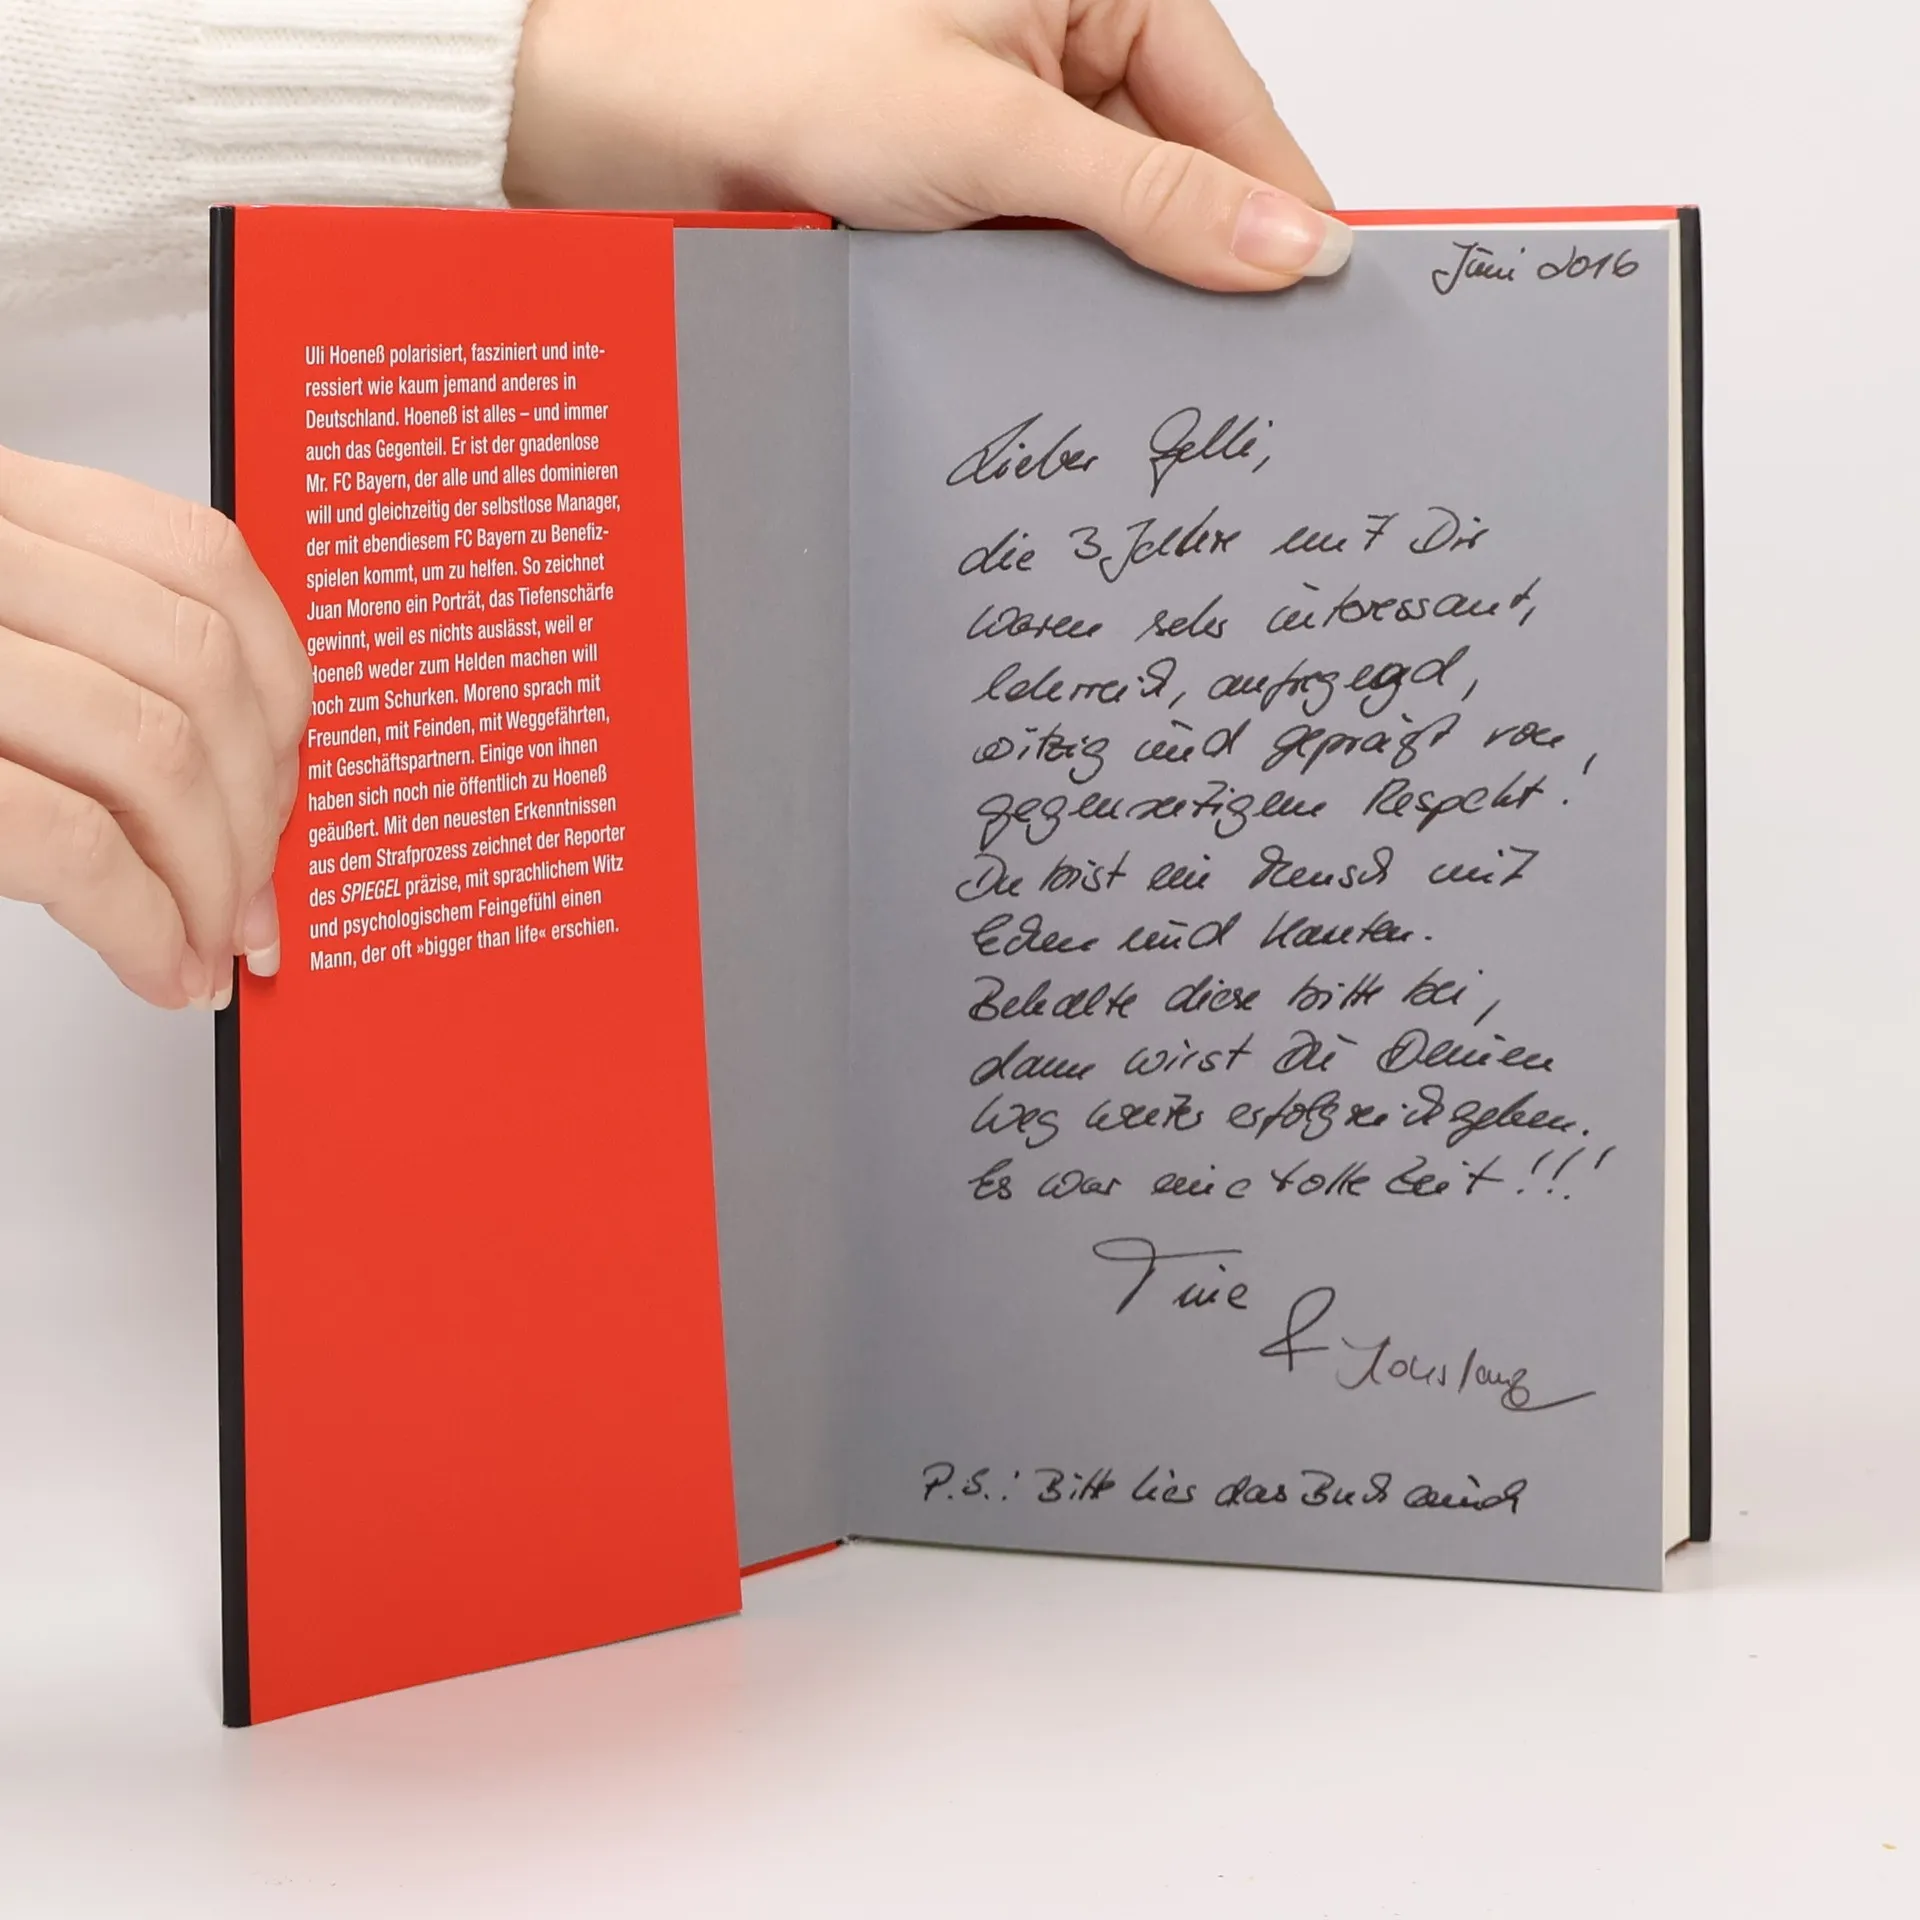 Uli Hoeneß polarisiert, fasziniert und inte-
ressiert wie kaum jemand anderes in
Deutschland. Hoeneß ist alles – und immer
auch das Gegenteil. Er ist der gnadenlose
Mr. FC Bayern, der alle und alles dominieren
will und gleichzeitig der selbstlose Manager,
der mit ebendiesem FC Bayern zu Benefiz-
spielen kommt, um zu helfen. So zeichnet
Juan Moreno ein Porträt, das Tiefenschärfe
gewinnt, weil es nichts auslässt, weil er
Hoeneß weder zum Helden machen will
noch zum Schurken. Moreno sprach mit
Freunden, mit Feinden, mit Weggefährten,
mit Geschäftspartnern. Einige von ihnen
haben sich noch nie öffentlich zu Hoeneß
geäußert. Mit den neuesten Erkenntnissen
aus dem Strafprozess zeichnet der Reporter
des SPIEGEL präzise, mit sprachlichem Witz
und psychologischem Feingefühl einen
Mann, der oft »bigger than life« erschien.
Juni 2016
Lieber
die 3 Jahre mit Dir
waren sehr interessant,
lehrreich, aufregend,
witzig und geprägt von
gegenseitigem Respekt!
Du bist ein Mensch mit
Ecken und Kanten.
Behalte diese bitte bei,
dann wirst Du Deinen
Weg weiter erfolgreich gehen.
Es war eine tolle Zeit!!!
Tine
&
P.S.: Bitte lies das Buch auch